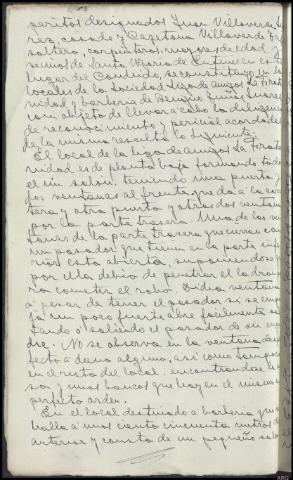 peritos designados Juan Villaverde
rez, casado y Cayetano Villaverde
soltero, carpinteros, mayores de edad y
vecinos de Santa María de
lugar de se constituyó en los
locales de la Sociedad Liga de amigos La Frater
nidad y barberia de Benigno Suarez
con objeto de llevar a cabo la diligencia
de reconocimiento y pericial acordada
de la misma resultó lo siguiente:
El local de la liga de amigos La Frater
nidad es de planta baja formando todo
el un salon, teniendo una puerta y
dos ventanas al frente que da a la carre
tera y otra puerta y otras dos ventanas
por la parte trasera. Una de las ven
tanas de la parte trasera que cierra con
un pasador que tiene en la parte infe
rior está abierta, suponiendose
por ella debió de penetrar el ladron pa
ra cometer el robo. Dicha ventana
a pesar de tener el pasador si se empu
ja un poco fuerte abre facilmente
dando o saliendo el pasador de su
No se observa en la ventana
fecto o daño alguno, asi como tampoco
en el resto del local, encontrandose
y unos bancos que hay en el mismo en
perfecto orden.
En el local destinado a barberia que se
halla a unos ciento cincuenta metros del
anterior y consta de un pequeño salon
ARG